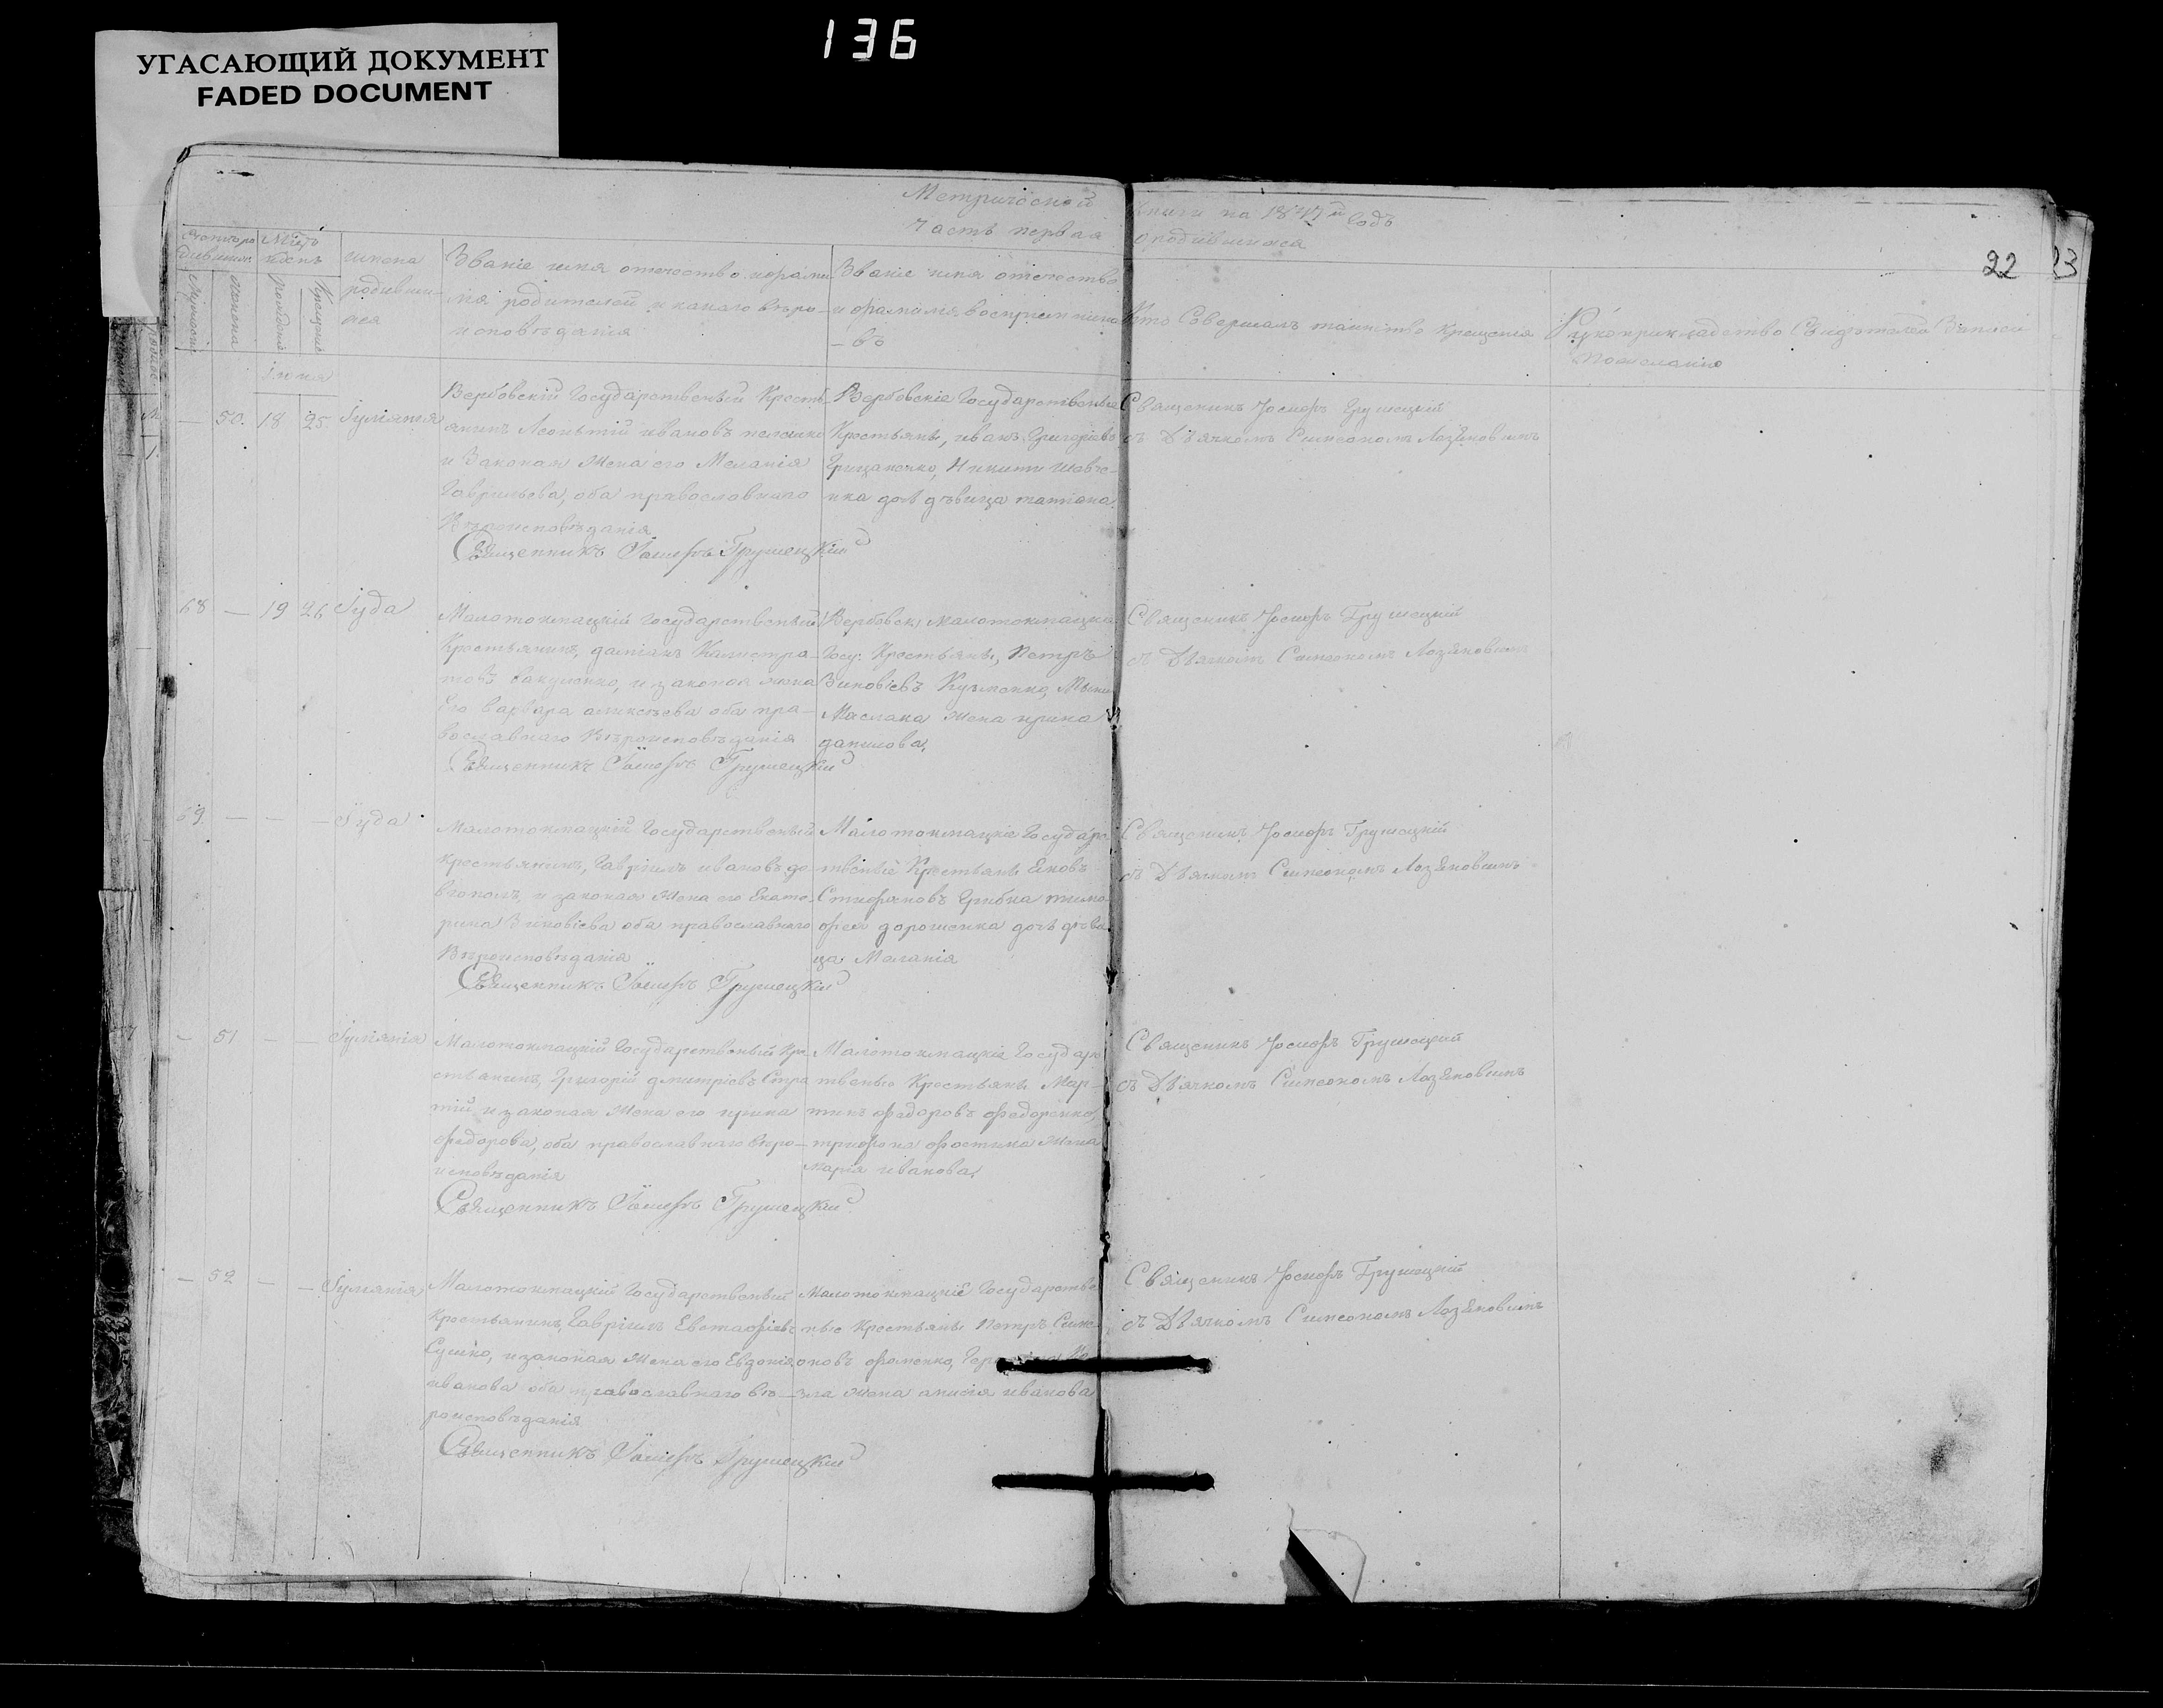 136
УГАСАЮЩИЙ ДОКУМЕНТ
FADED DOCUMENT
Метрической Книги на 1847й годъ
Часть первая о родившихся
22 23
Счетъ родившихся
Мѣсяцъ
Имена родившихся
Званіе имя отечество и фамилія родителей и какого вѣроисповѣданія
Званіе имя отечество и фамилія воспріемниковъ
Кто Совершалъ таинство крещенія
Рукоприкладство Свидѣтелей Записи по желанію
Мужеска
Женска
рожденія
Крещенія
іюня
— 50. 18 25. Іуліанія
Вербовскій Государственый Кресть-
янинъ Леонтій ивановъ
и Законая Жена его Меланія
Гаврильева, оба православнаго
Вѣроисповѣданія
Священникъ Іосифъ Грушецкій
Вербовскіе Государственые
Крестьяне, иванъ Григоріевъ
Грицаненко, Никиты Шевче-
нка дочь дѣвица татіана.
Священикъ Іосифъ Грушецкій
съ Дѣячкомъ Симеономъ Лозяновимъ
68 — 19 26 Іуда
Малотокмацкій Государственый
Крестьянинъ, даміанъ Калистра-
товъ Вакуленко, и законая жена
Его варвара алексѣева оба пра-
вославнаго Вѣроисповѣданія
Священникъ Іосифъ Грушецкій
Вербовск: малотокмацкіе
Госу: Крестьяне, Петръ
Зиновіевъ Кузменко,
Маслака жена ирина
данилова.
Священикъ Іосифъ Грушецкій
съ Дѣячкомъ Симеономъ Лозяновимъ
69. — — — Іуда
Малотокмацкій Государственый
крестьянинъ, Гавріилъ ивановъ до-
вгополъ, и законая Жена его Екате-
рина Зиновіева оба православнаго
Вѣроисповѣданія
Священникъ Іосифъ Грушецкій
Малотокмацкіе Государс-
твеные Крестьяне Яковъ
Стефановъ Грибка тимо-
фея дорошенка дочь дѣви-
ца Меланія
Священикъ Іосифъ Грушецкій
съ Дѣячкомъ Симеономъ Лозяновимъ
— 51 — — Іуліанія
Малотокмацкій Государственый Кре-
стьянинъ, Григорій дмитріевъ
и законая Жена его ирина
федорова, оба православнаго вѣро-
исповѣданія
Священникъ Іосифъ Грушецкій
Малотокмацкіе Государс-
твеные Крестьяне Мар-
тинъ федоровъ федоренко,
трифона жена
Марія иванова.
Священикъ Іосифъ Грушецкій
съ Дѣячкомъ Симеономъ Лозяновимъ
— 52 — — Іуліанія
Малотокмацкій Государственый
Крестьянинъ, Гавріилъ Евстафіевъ
и законая Жена его Евдокія
иванова оба православнаго вѣ-
роисповѣданія
Священникъ Іосифъ Грушецкій
Малотокмацкіе Государстве-
ные Крестьяне Петръ Симе-
оновъ фоменко,
жена анисія иванова
Священикъ Іосифъ Грушецкій
съ Дѣячкомъ Симеономъ Лозяновимъ